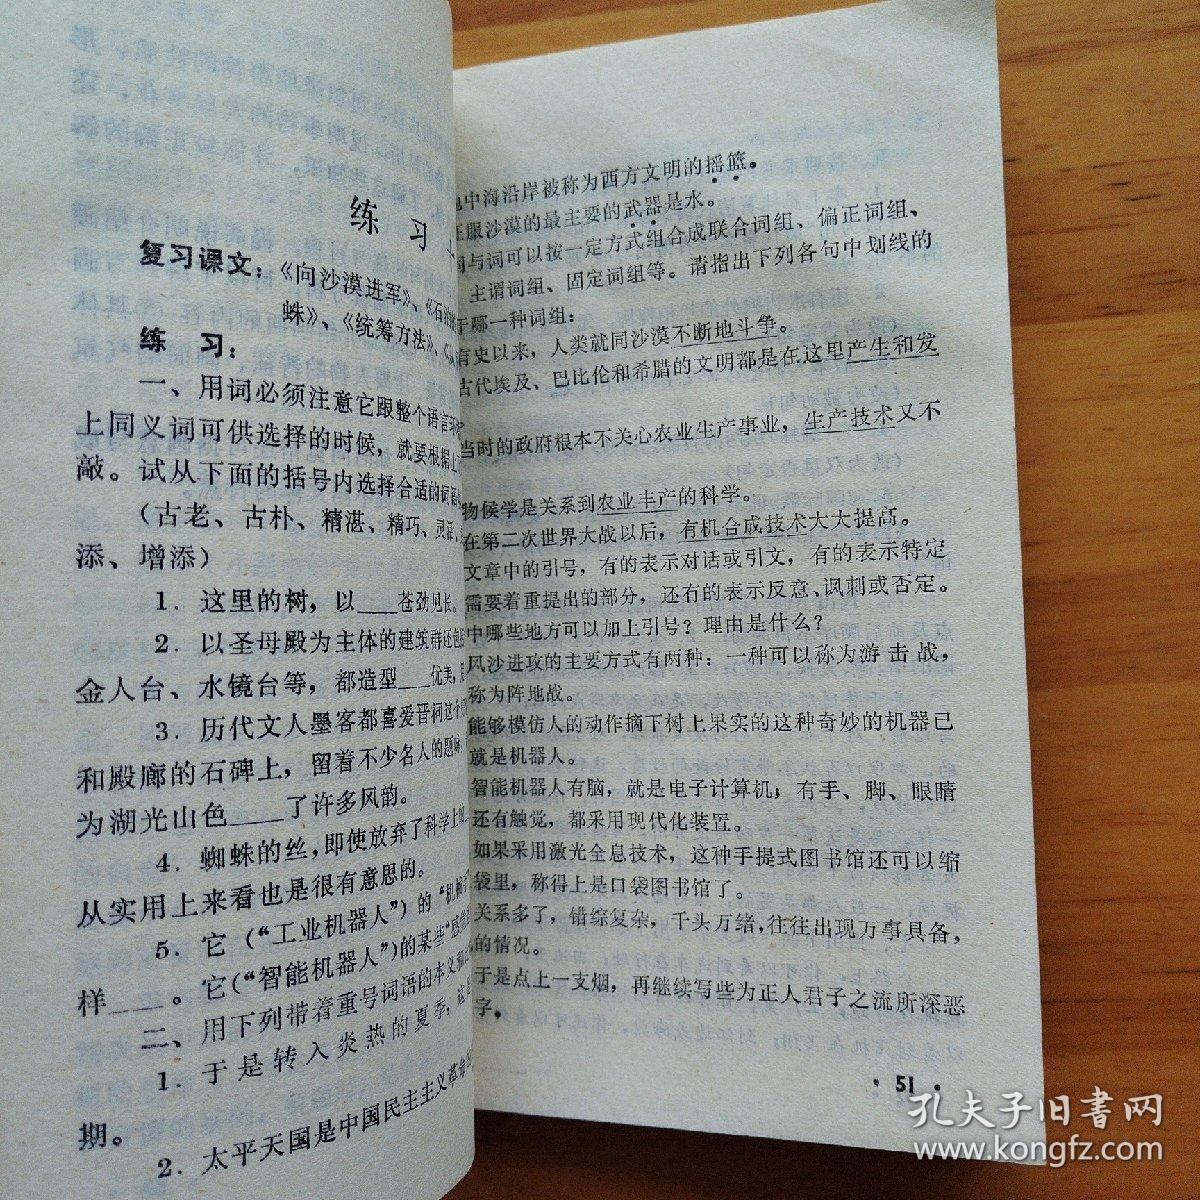 练 习
复习课文：《向沙漠进军》、《石
蛛》、《统筹方法》、
练 习：
一、用词必须注意它跟整个语言环
上同义词可供选择的时候，就要根据上
敲。试从下面的括号内选择合适的词
（古老、古朴、精湛、精巧、灵
添、增添）
1．这里的树，以___苍劲见长。
2．以圣母殿为主体的建筑群还
金人台、水镜台等，都造型___优美，
3．历代文人墨客都喜爱晋祠这个
和殿廊的石碑上，留着不少名人的题
为湖光山色___了许多风韵。
4．蜘蛛的丝，即使放弃了科学上
从实用上来看也是很有意思的。
5．它（“工业机器人”）的“机械
样___。它（“智能机器人”）的某些“感
二、用下列带着重号词语的本义和
1．于是转入炎热的夏季，这
期。
2．太平天国是中国民主主义革命
中海沿岸被称为西方文明的摇篮。
服沙漠的最主要的武器是水。
与词可以按一定方式组合成联合词组、偏正词组、
主谓词组、固定词组等。请指出下列各句中划线的
哪一种词组：
有史以来，人类就同沙漠不断地斗争。
古代埃及、巴比伦和希腊的文明都是在这里产生和发
当时的政府根本不关心农业生产事业，生产技术又不
物候学是关系到农业丰产的科学。
在第二次世界大战以后，有机合成技术大大提高。
文章中的引号，有的表示对话或引文，有的表示特定
需要着重提出的部分，还有的表示反意、讽刺或否定。
中哪些地方可以加上引号？理由是什么？
风沙进攻的主要方式有两种：一种可以称为游击战，
称为阵地战。
能够模仿人的动作摘下树上果实的这种奇妙的机器已
就是机器人。
智能机器人有脑，就是电子计算机；有手、脚、眼睛
还有触觉，都采用现代化装置。
如果采用激光全息技术，这种手提式图书馆还可以缩
袋里，称得上是口袋图书馆了。
关系多了，错综复杂，千头万绪，往往出现万事具备，
的情况。
于是点上一支烟，再继续写些为正人君子之流所深恶
字。
· 51 ·
孔夫子旧书网
www.kongfz.com